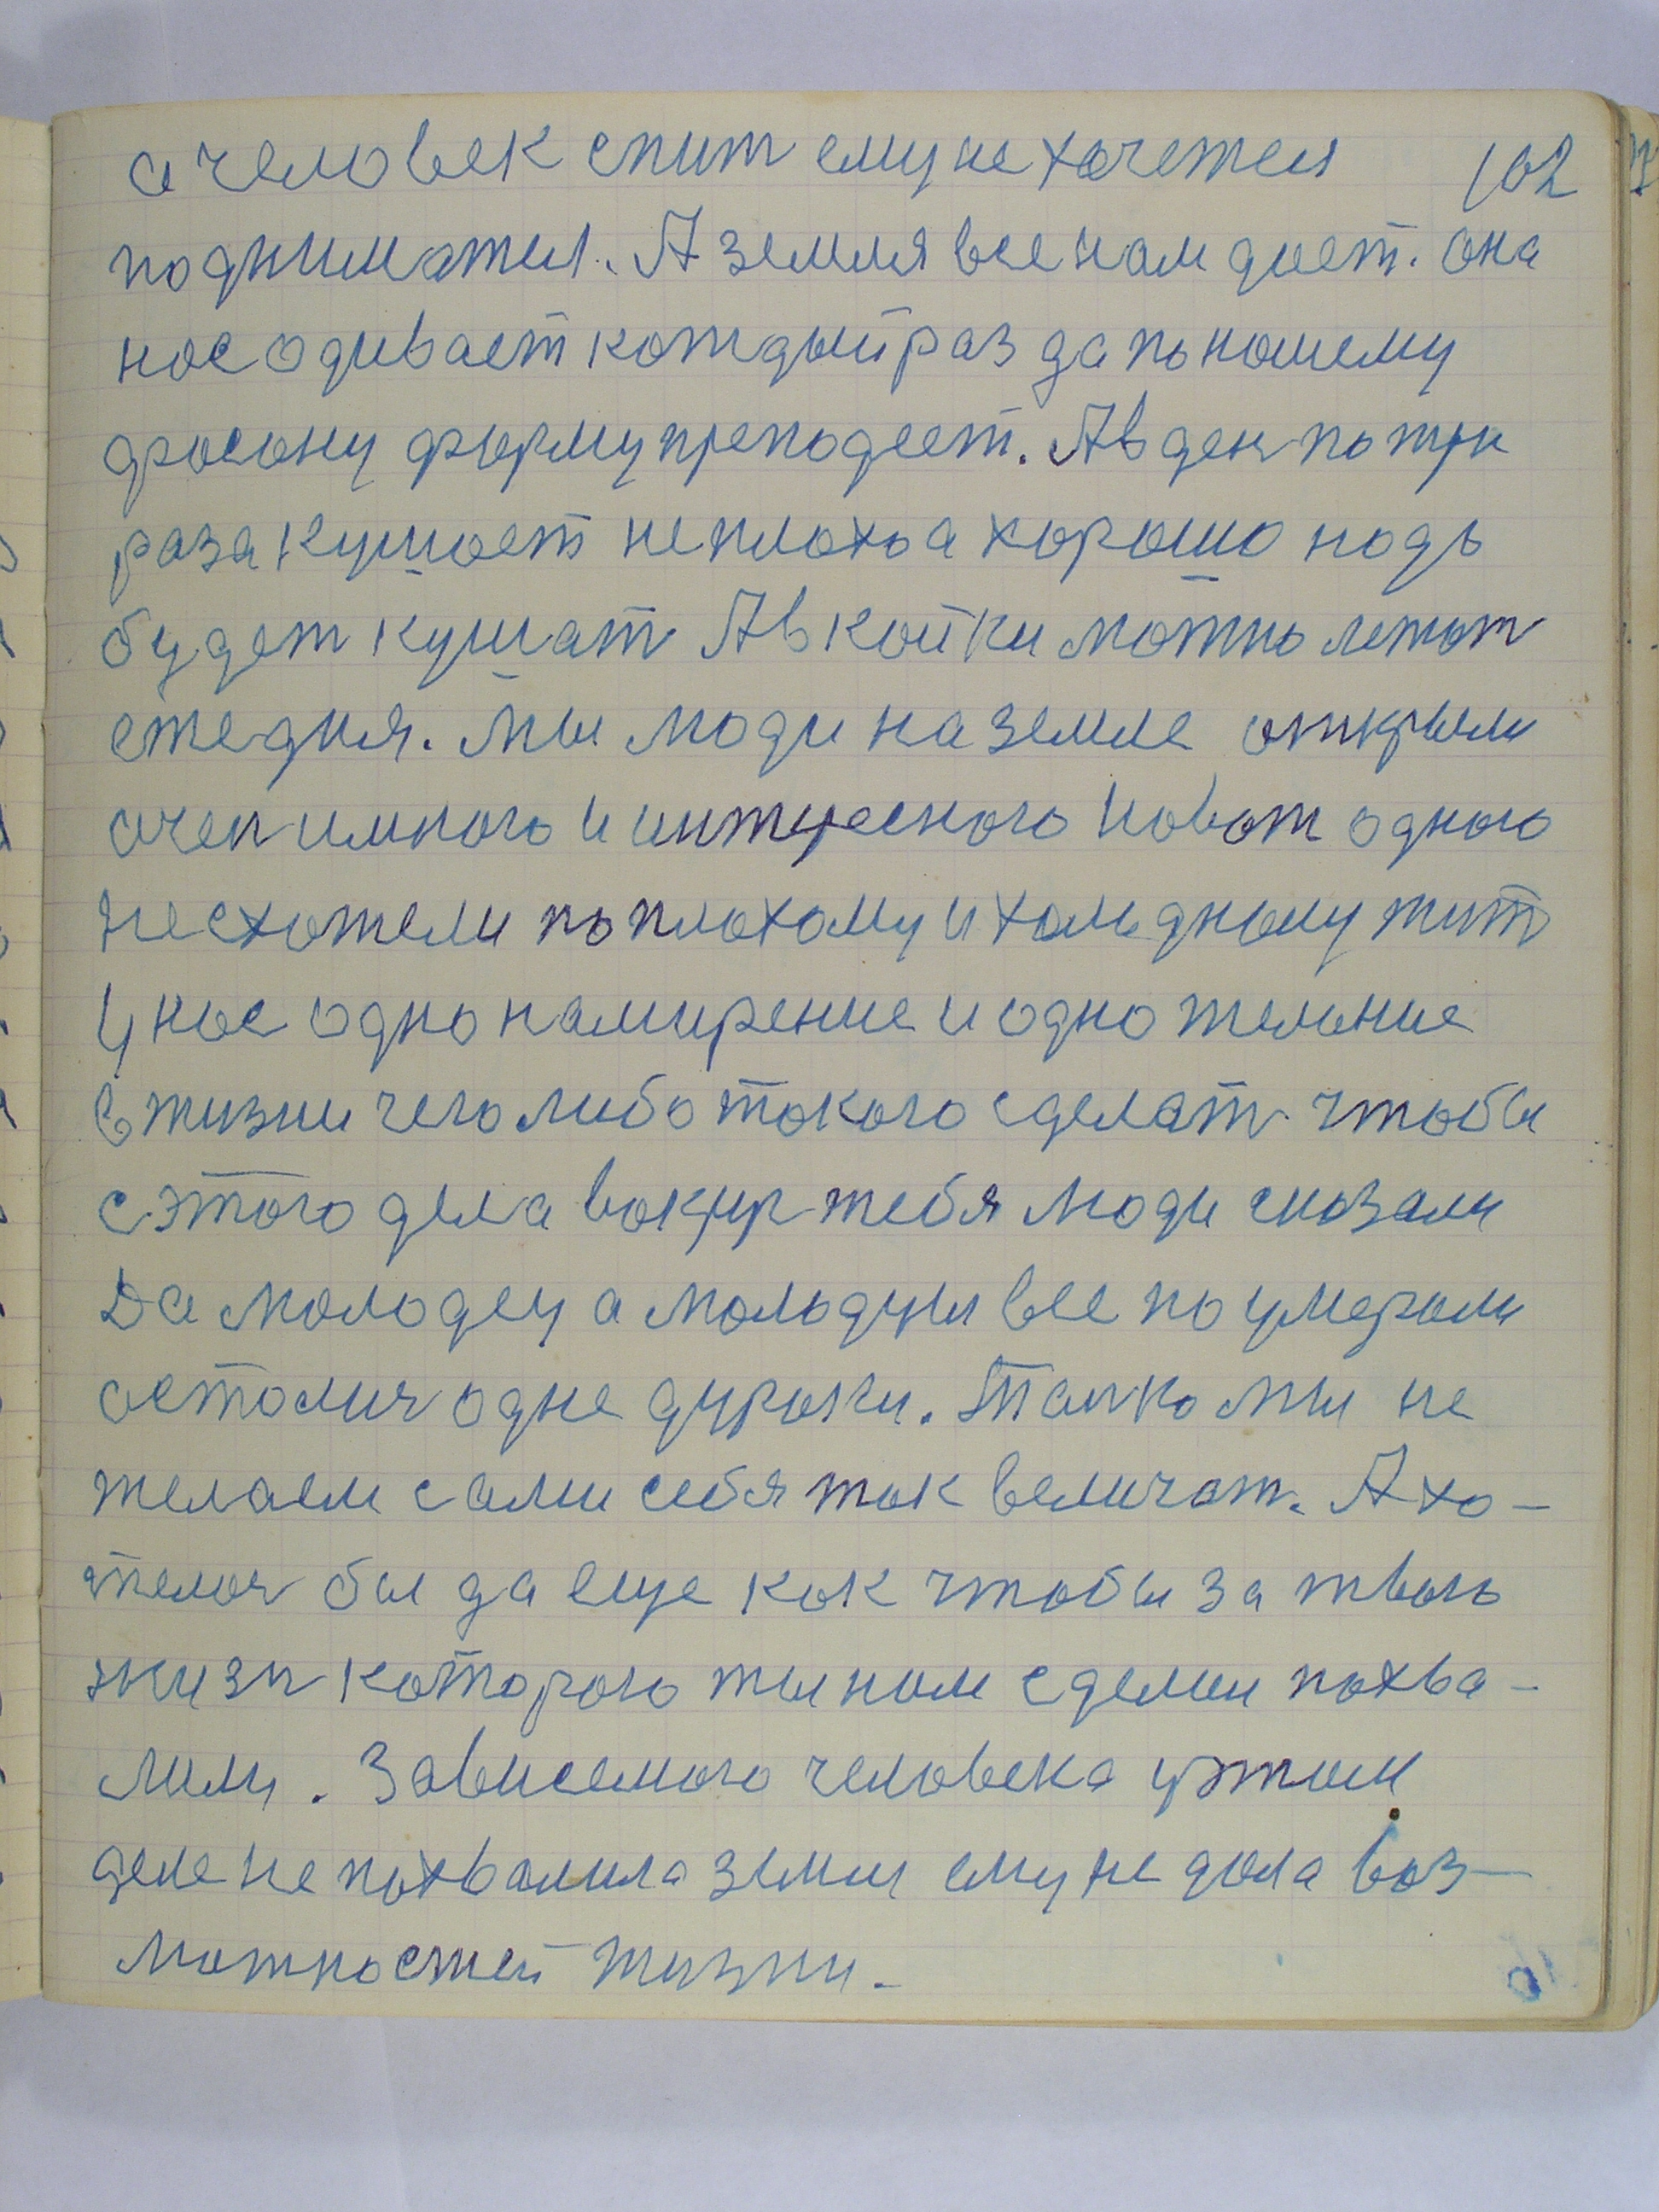 а человек спит ему не хочетея 102
подниматся. А земля все нам дает. она
нас одивает кождый раз да по нашему
фасону форму преподеет. А в ден по три
раза кушает не плохо а хорошо надо
будет кушат А в койки можно лежат
ежедня. Мы люди на земле открыли
очен и много и интересного И вот одного
не схотели по плохому и холодному жит
У нас одно намирение и одно желание
в жизни чего либо такого сделат чтобы
с этого дела вокруг тебя люди сказали
Да молодец а молодци все поумерали
осталис одне дураки. Толко мы не
желаем сами себя так величат. А хо-
телос бы да еще как чтобы за твою
жизн которою ты нам сделал похва-
лили. Зависемого человека у этом
деле не похвалила земля ему не дала воз-
можностей жизни.